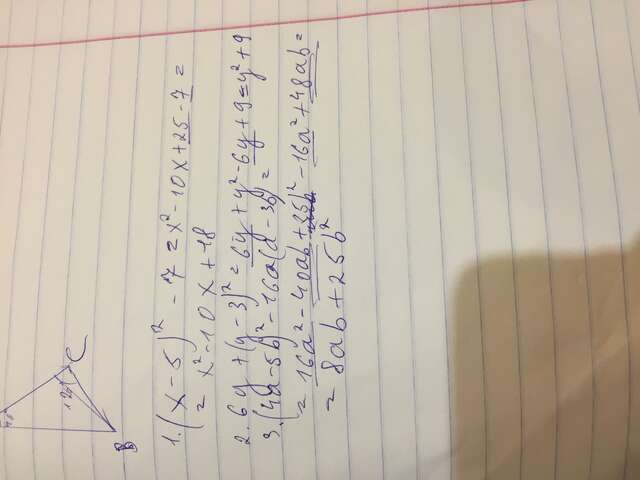 C
B
1. (x-5)² - 7 = x² - 10x + 25 - 7 =
= x² - 10x + 18
2. 6y + (y-3)² = 6y + y² - 6y + 9 = y² + 9
3. (4a-5b)² - 16a(a-3b) =
= 16a² - 40ab + 25b² - 16a² + 48ab =
= 8ab + 25b²